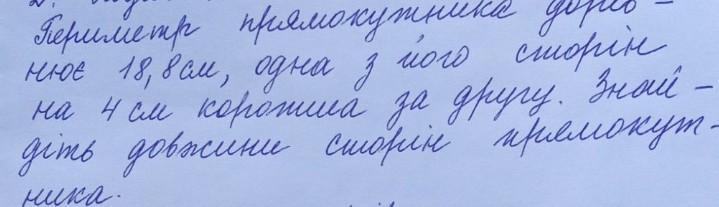 Периметр прямокутника дорів-
нює 18,8см, одна з його сторін
на 4 см коротша за другу. Знай-
діть довжини сторін прямокут-
ника.